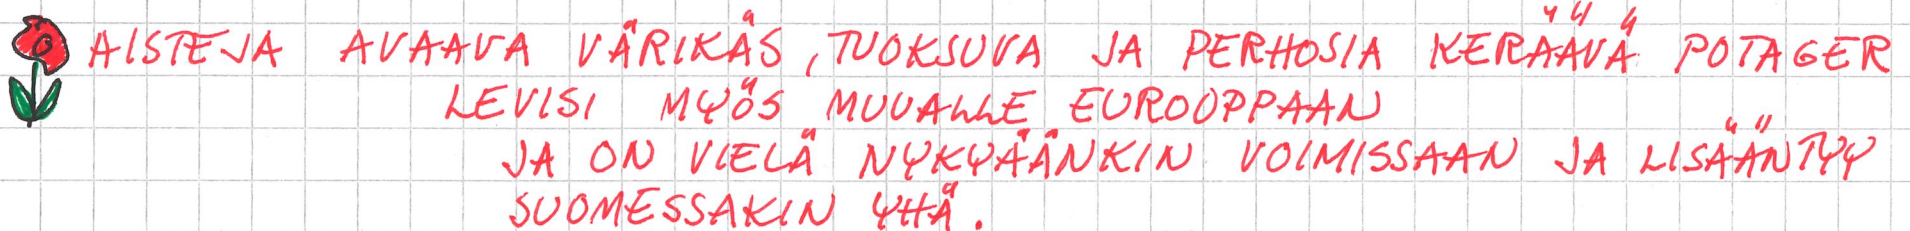 AISTEJA AVAAVA VÄRIKÄS, TUOKSUVA JA PERHOSIA KERÄÄVÄ POTAGER
LEVISI MYÖS MUUALLE EUROOPPAAN
JA ON VIELÄ NYKYÄÄNKIN VOIMISSAAN JA LISÄÄNTYY
SUOMESSAKIN YHÄ.